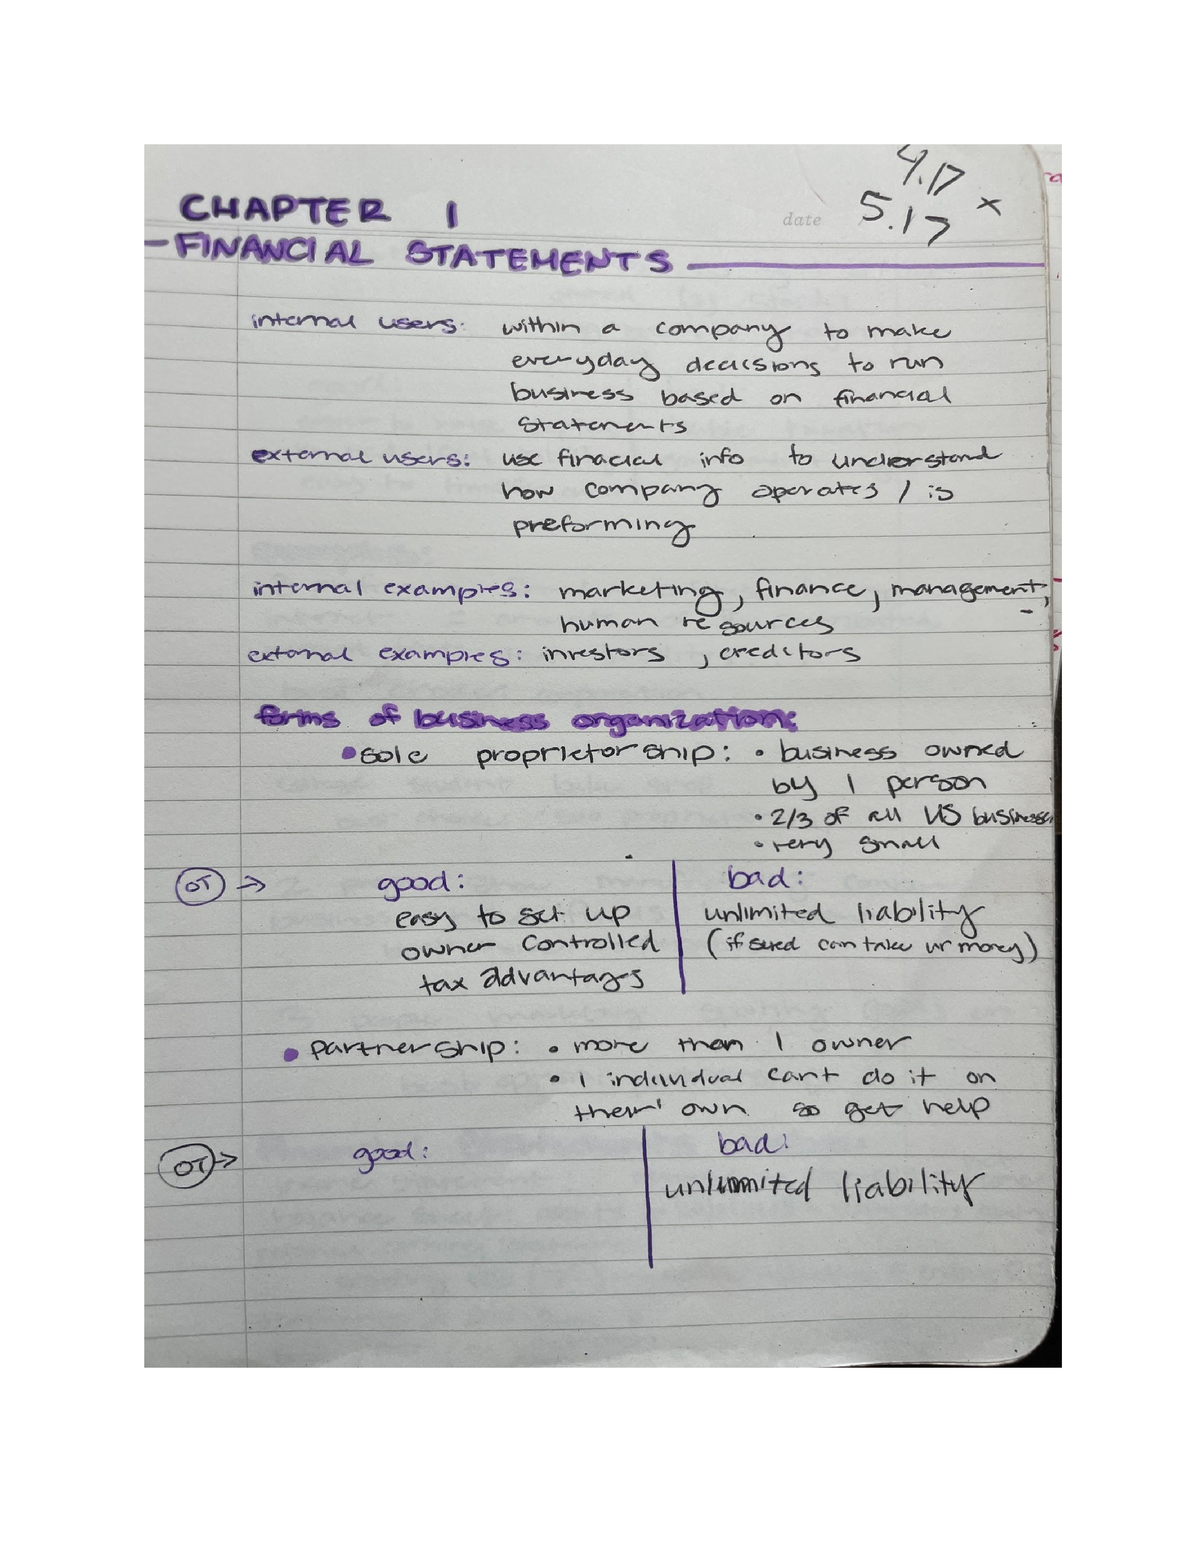 4.17
date 5.17 x
CHAPTER 1
- FINANCIAL STATEMENTS
internal users: within a company to make
everyday decisions to run
business based on financial
statements
external users: use finacial info to understand
how company operates / is
preforming
internal examples: marketing, finance, management,
human resources
external examples: investors, creditors
forms of business organization:
• sole proprietorship: • business owned
by 1 person
• 2/3 of all US business
• very small
OT → good: bad:
easy to set up unlimited liability
owner controlled (if sued can take ur money)
tax advantages
• partnership: • more than 1 owner
• 1 individual can't do it on
their own so get help
OT → good: bad:
unlimited liability